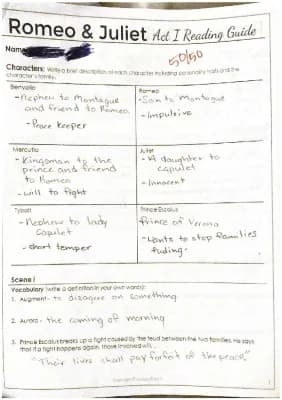 Romeo & Juliet Act I Reading Guide
Name
50/50
Characters: Write a brief description of each character including personality traits and the
character's family.
Benvolio
-Nephew to Montague
and friend to Romeo.
-Peace keeper
Romeo
-Son to Montague
-Impulsive
Mercutio
-Kingsman to the
prince and friend
to Romeo
-will to fight
Juliet
-A daughter to
capulet
-Innocent
Tybalt
-Nephew to lady
Capulet
-short temper
Prince Escalus
Prince of Verona
-Wants to stop families
fuding.
Scene I
Vocabulary (write a definition in your own words):
1. Augment- to disagree on something
2. Aurora- the coming of morning
3. Prince Escalus breaks up a fight caused by the feud between the two families. He says
that if a fight happens again, those involved will...
"Their lives shall pay forfeit of the peace."
1